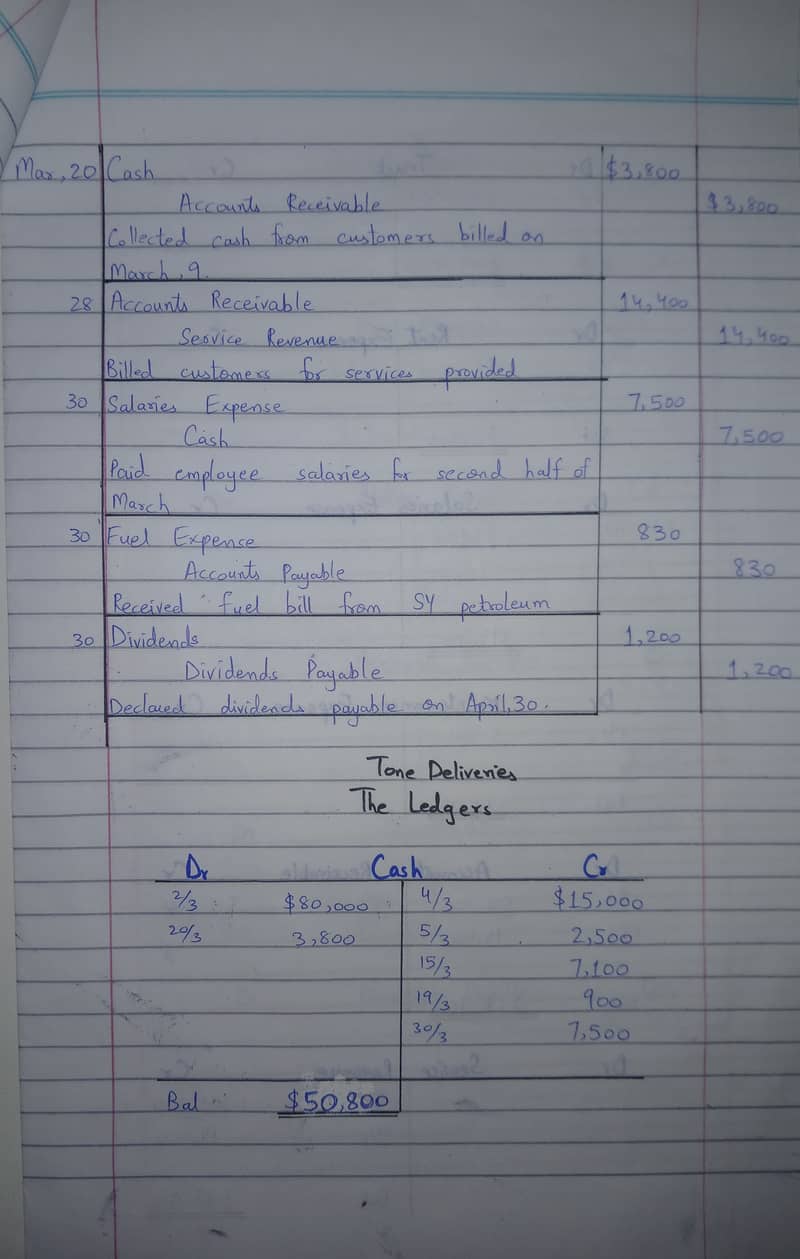 Mar, 20 Cash $3,800
Accounts Receivable $3,800
Collected cash from customers billed on
March, 9.
28 Accounts Receivable 14,400
Service Revenue 14,400
Billed customers for services provided
30 Salaries Expense 7,500
Cash 7,500
Paid employee salaries for second half of
March
30 Fuel Expense 830
Accounts Payable 830
Received fuel bill from SY petroleum
30 Dividends 1,200
Dividends Payable 1,200
Declared dividends payable on April, 30.
Tone Deliveries
The Ledgers
Dr Cash Cr
2/3 $80,000 4/3 $15,000
20/3 3,800 5/3 2,500
15/3 7,100
19/3 900
30/3 7,500
Bal $50,800